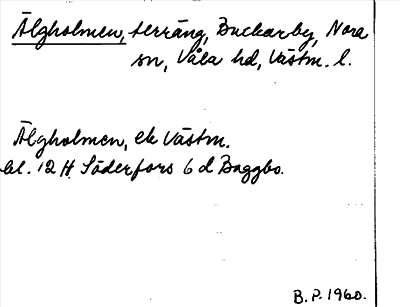 Älgholmen, terräng, Buckarby, Nora
sn, Våla hd, Västm. l.
Älgholmen, ek Västm.
bl. 12 H Söderfors 6 d Baggbo.
B.P. 1960.